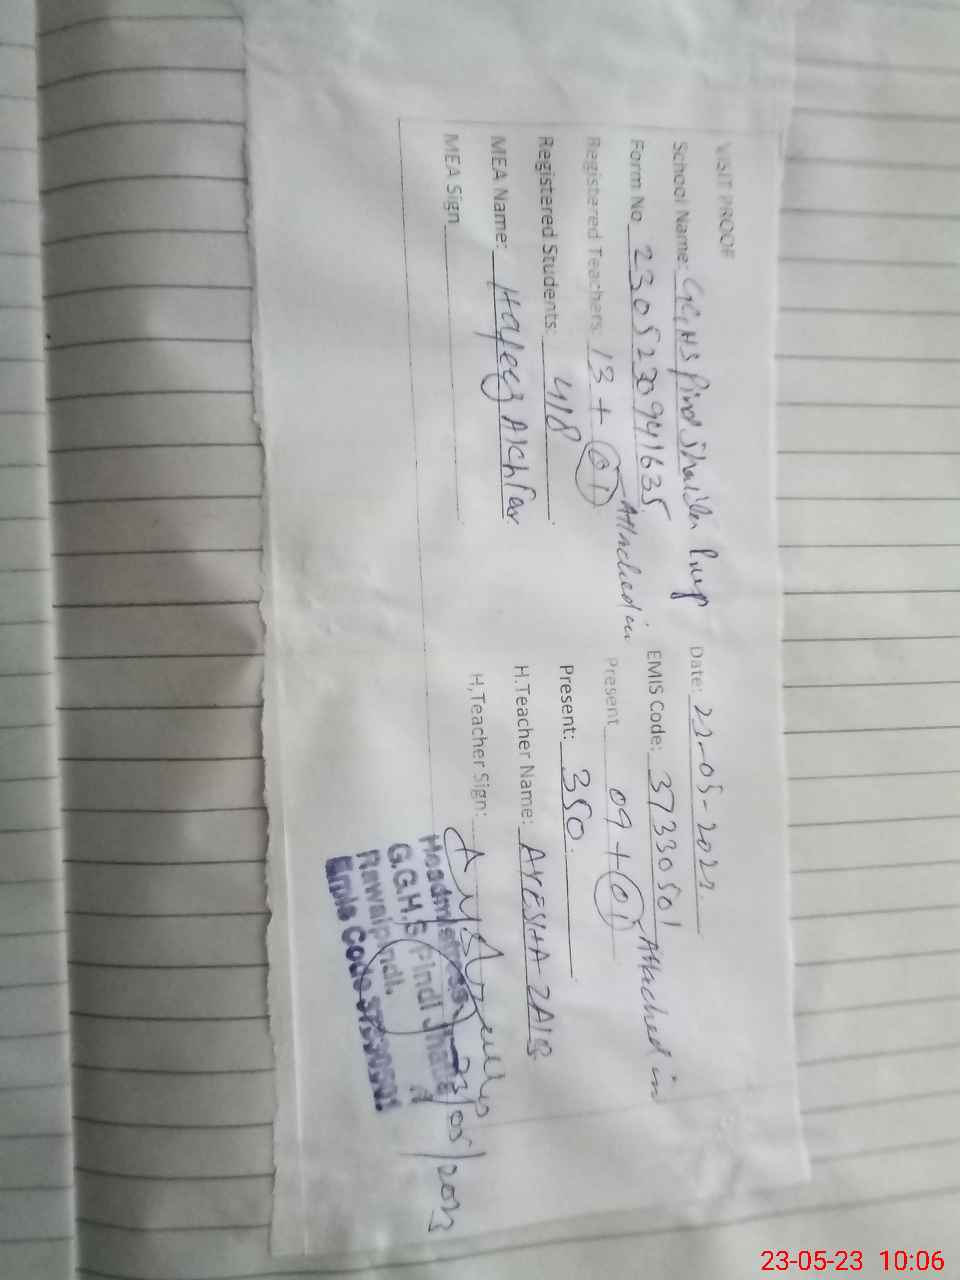 VISIT PROOF
School Name: GGHS Pind Date:
Form No 2305230941635 EMIS Code: 37330501
Registered Teachers 13 + 01 Attached in Present 09 + 01 Attached in
Registered Students: 418 Present: 350
MEA Name: Akhtar H.Teacher Name: AYESHA ZAIB
MEA Sign H,Teacher Sign:
23/05/2023
Headmistress
G.G.H.S Pindi
Rawalpindi.
Emis Code 37330501
23-05-23 10:06